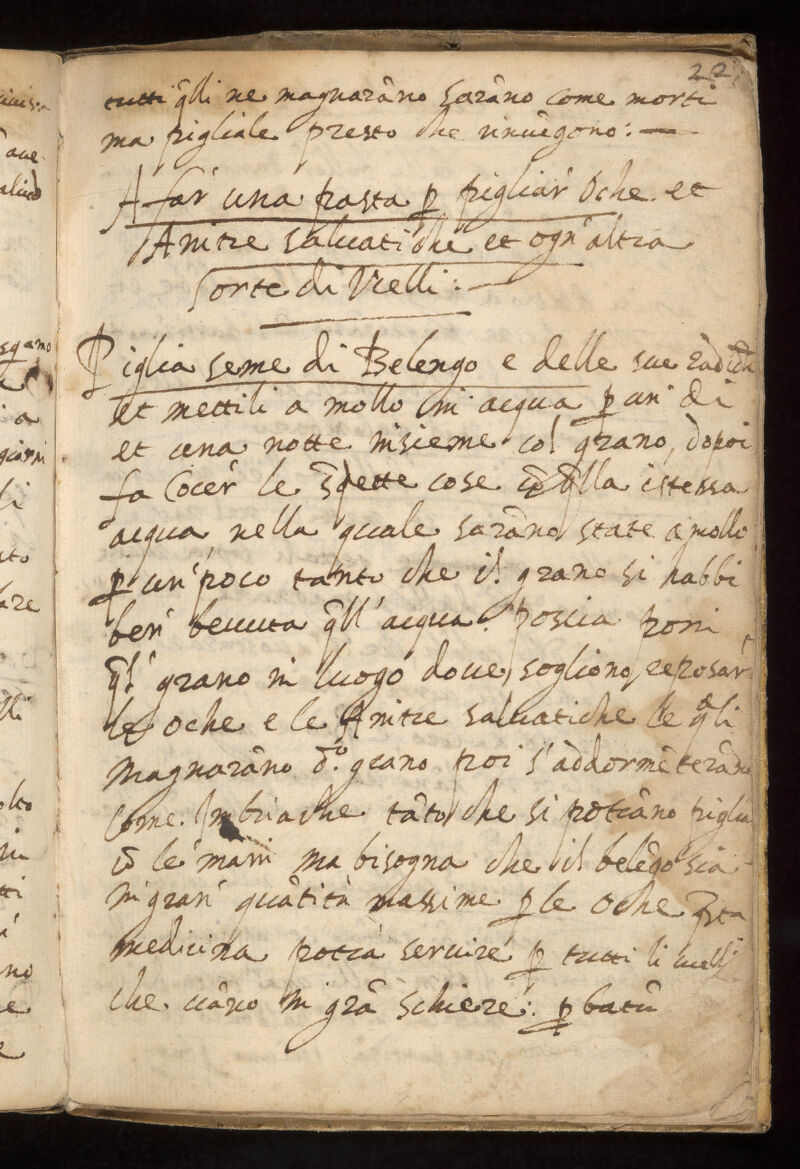 22
tutti q̃lli ne magnarãno sarãno come morti
ma pigliale presto che rinuẽgono: —
A far' una pasta p̱ pigliar' Oche et
Anitre saluatiche et ogn'altra
sorte di Vcelli: —
Piglia seme di Belengo e delle sue radich
et mettili a mollo in acqua p̱ un' di
et una notte insieme col grano, dopoi
fa Cocer' le s̃dette cose cõ q̃lla istessa
acqua nella quale sarãno state a mollo
p̱ un' poco tanto che il grano si habbi
ben' beuuta q̃ll'acqua. poscia poni
q̃l' grano in luogo doue sogliono reposar'
le Oche e le Anitre saluatiche le q̃li
magnarãno d.º grano poi s'addormẽterãno
come Imbriache tãto che si potrãno piglia
cõ le mani ma bisogna che il belẽgo sia
in gran' quãtità massime p̱ le Oche q̃sta
medicina potrà seruire p̱ tutti li ucelli
che uãno in grã schiere: p̱batũ